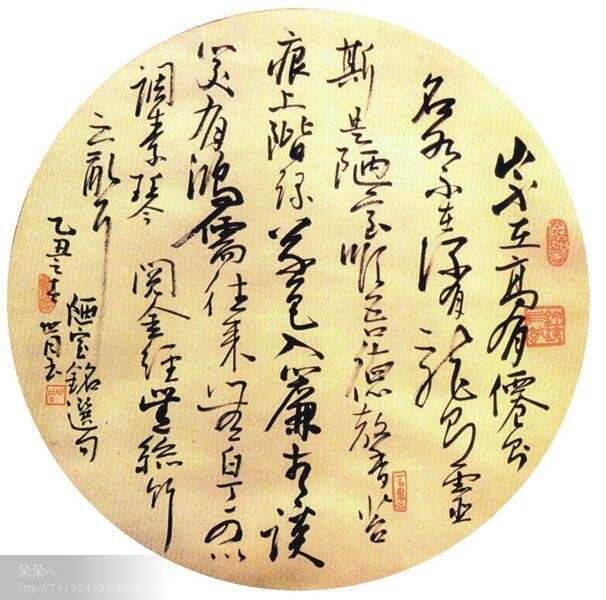 山不在高有僊則
名水不在深有龍則靈
斯是陋室惟吾德馨苔
痕上階綠草色入簾青談
笑有鴻儒往来無白丁可以
調素琴閱金經無絲竹
之亂耳
陋室銘選句
乙丑之春
朵朵~